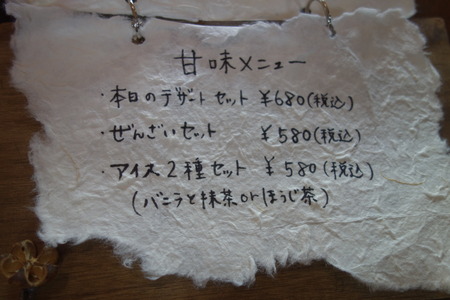 甘味メニュー
・本日のデザートセット ¥680(税込)
・ぜんざいセット ¥580(税込)
・アイス2種セット ¥580(税込)
(バニラと抹茶orほうじ茶)